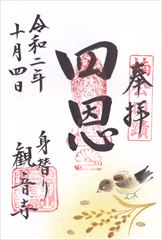 奉拝
四恩
令和二年
十月四日
身替り
観音寺